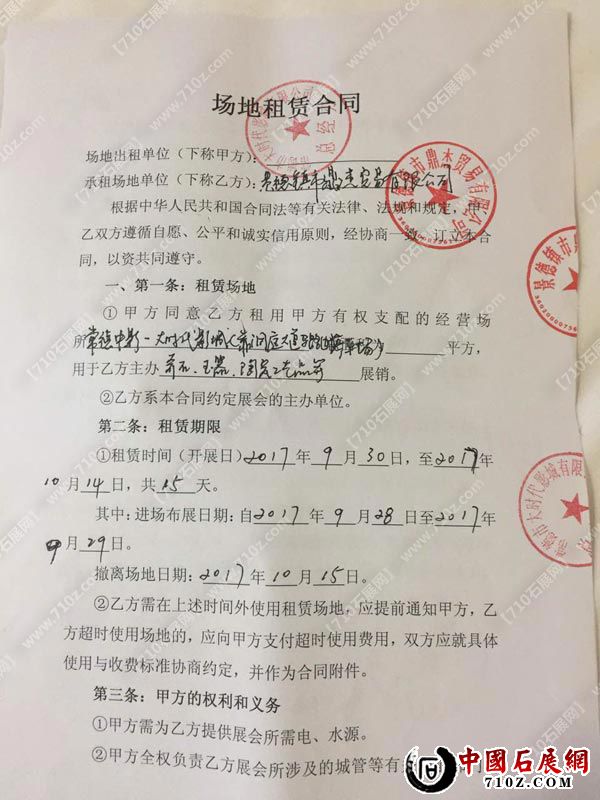 场地租赁合同
场地出租单位（下称甲方）：
承租场地单位（下称乙方）：景德镇市鼎杰贸易有限公司
根据中华人民共和国合同法等有关法律、法规和规定，甲
乙双方遵循自愿、公平和诚实信用原则，经协商一致，订立本合
同，以资共同遵守。
一、第一条：租赁场地
①甲方同意乙方租用甲方有权支配的经营场
所常德中影一大时代影城 平方，
用于乙方主办奇石、玉器、陶瓷工艺品等展销。
②乙方系本合同约定展会的主办单位。
第二条：租赁期限
①租赁时间（开展日）2017年9月30日，至2017年
10月14日，共15天。
其中：进场布展日期：自2017年9月28日至2017年
9月29日。
撤离场地日期：2017年10月15日。
②乙方需在上述时间外使用租赁场地，应提前通知甲方，乙
方超时使用场地的，应向甲方支付超时使用费用，双方应就具体
使用与收费标准协商约定，并作为合同附件。
第三条：甲方的权利和义务
①甲方需为乙方提供展会所需电、水源。
②甲方全权负责乙方展会所涉及的城管等有
景德镇市鼎杰贸易有限公司
常德市大时代影城有限
中國石展網
710z.com
【710石展网】
www.710z.com